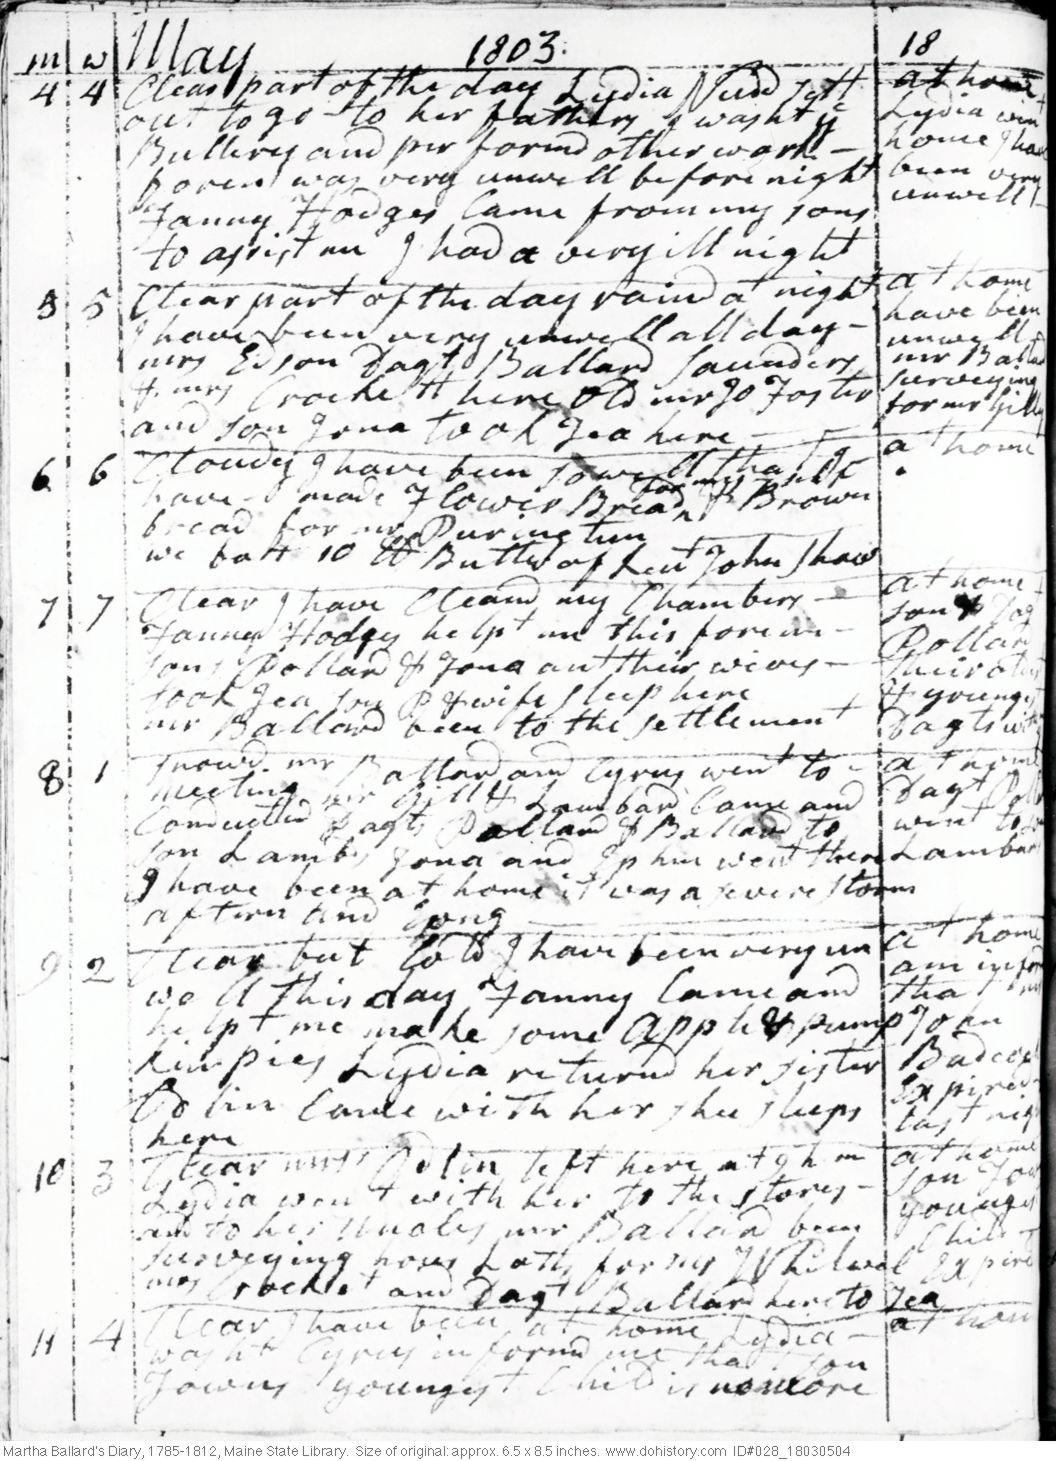 m w May 1803. 18
4 4 Clear part of the day Lydia Nudd sett
out to go to her fathers I washt
and performd other work -
was very unwell before night
Fanny Hodges Came from my sons
to assist me I had a very ill night
at home
Lydia went
home I have
been very
unwell -
5 5 Clear part of the day raind at night
I have been very unwell all day -
mrs Edson Dagt Ballard Saunders
& mrs Crocket here old mr Jo Foster
and son Jona took Tea here
at home
have been
unwell
mr Ballard
surveying
for mr Gilly
6 6 Cloudy I have been so well that I
have made Flower Bread & Brown
bread for mrs Purington
we bott 10 lb Butter of Leut John Shaw
at home
7 7 Clear I have Cleand my Chambers -
Fanny Hodges helpt me this foren -
sons Pollard & Jona an their wives -
took Tea son P & wife sleep here
mr Ballard been to the settlement
at home
son &
Pollard
their
& youngest
Dagts
8 1 Snowd. mr Ballard and Cyrus went to -
meeting mr Gill & Lambard Came and
Conducted Dagts Pollard & Ballard to
son Lambds Jona and Ephm went there
I have been at home it was a severe storm
aftern and Evng
at home
Dagt
went to
Lambard
9 2 Clear but Cold I have been very un
well this day Fanny Came and
helpt me make some Apple & pump
kin pies Lydia returnd her sister
Came with her shee sleeps
here
at home
am informd
that
John
Badcock
Expired
last night
10 3 Clear mrs left here at 9 h m
Lydia went with her to the stores -
and to his Uncles mr Ballard been
surveying hows Lotts for mr Whitwel
mrs Crocket and Dagt Ballard here to Tea
at home
son
youngest
Child
Expird
11 4 Clear I have been at home Lydia -
washt Cyrus informd me that son
Towns youngest Child is no more
at home
Martha Ballard's Diary, 1785-1812, Maine State Library. Size of original: approx. 6.5 x 8.5 inches. www.dohistory.com ID#028_18030504